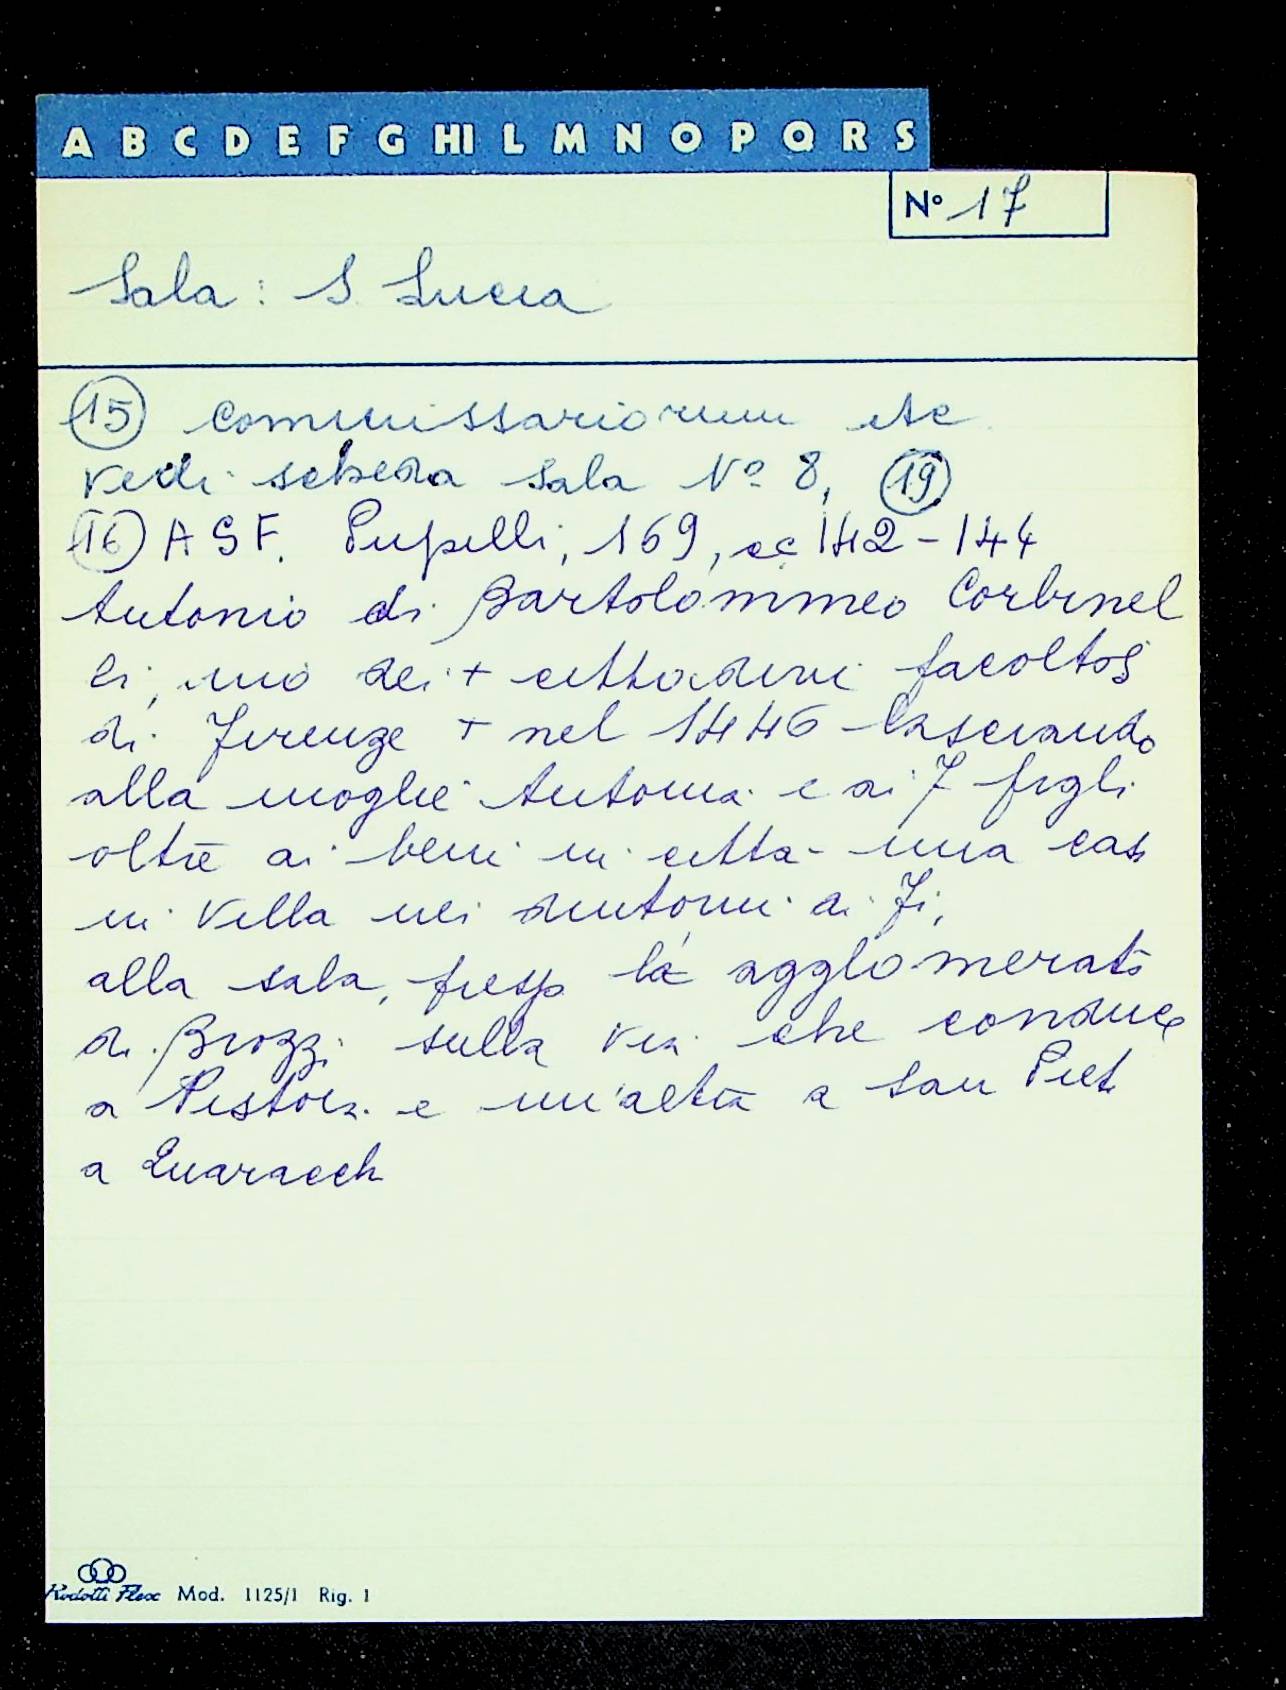 A B C D E F G HI L M N O P Q R S
N° 17
Sala: S. Lucia
15 commissariorum etc.
vedi scheda Sala N° 8, 19
16 A S F. Pupilli, 169, cc 142-144
Antonio di Bartolommeo Corbinel
li, uno dei + cittadini facoltosi
di Firenze + nel 1446 lasciando
alla moglie Antonia e ai 7 figli
oltre ai beni in citta una casa
in villa nei dintorni di Fi,
alla sala, presso la agglomerato
di Brozzi sulla via che conduce
a Pistoia e un'altra a San Piet
a Quaracch
Rodotti Flex Mod. 1125/1 Rig. 1